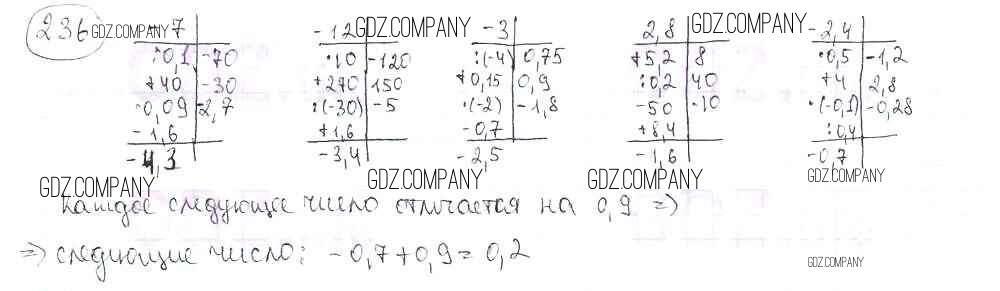 236 GDZ.COMPANY
-7
:0,1 -70
+40 -30
·0,09 -2,7
-1,6
-4,3
-12 GDZ.COMPANY
·10 -120
+270 150
:(-30) -5
+1,6
-3,4
-3
:(-4) 0,75
+0,15 0,9
·(-2) -1,8
-0,7
-2,5
2,8 GDZ.COMPANY
+5,2 8
:0,2 40
-50 -10
+8,4
-1,6
-2,4
·0,5 -1,2
+4 2,8
·(-0,1) -0,28
:0,4
-0,7
GDZ.COMPANY GDZ.COMPANY GDZ.COMPANY
Каждое следующее число отличается на 0,9 =>
=> следующие число: -0,7+0,9=0,2
GDZ.COMPANY